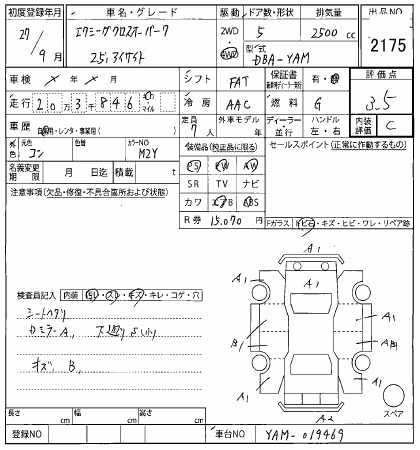 初度登録年月 車名・グレード 駆動 ドア数・形状 排気量 出品NO
27/9月 エクシーガクロスオーバー7 2WD 4WD 5 2500cc 2175
2.5i アイサイト 型式 DBA-YAM
車検 × 年 × 月 シフト FAT 保証書 有・無 評価点
走行 2 0万 3千 8 4 6 km マイル 冷房 AAC 燃料 G 3.5
車歴 自家用・レンタ・事業用( ) 定員 7人 外車モデル 年 ディーラー・並行 ハンドル 左・右 内装評価 C
外色 元色 コン 色替 カラーNO M2Y 装備品(純正品に限る) セールスポイント(正常に作動するもの)
名義変更期限 月 日迄 積載 t PS PW AW
SR TV ナビ
注意事項(欠品・修復・不具合箇所および状態) カワ エアB ABS
R券 15,070円 Fガラス トビ石・キズ・ヒビ・ワレ・リペア跡
A1
A1 A1
A1
検査員記入 内装 汚レ・スレ・キズ・キレ・コゲ・穴
シートヘタリ A1 A1
B1 AB1
キズ B,
A1 A1
スペア
A2
長さ cm 幅 cm 高さ cm
登録NO 車台NO YAM-019469